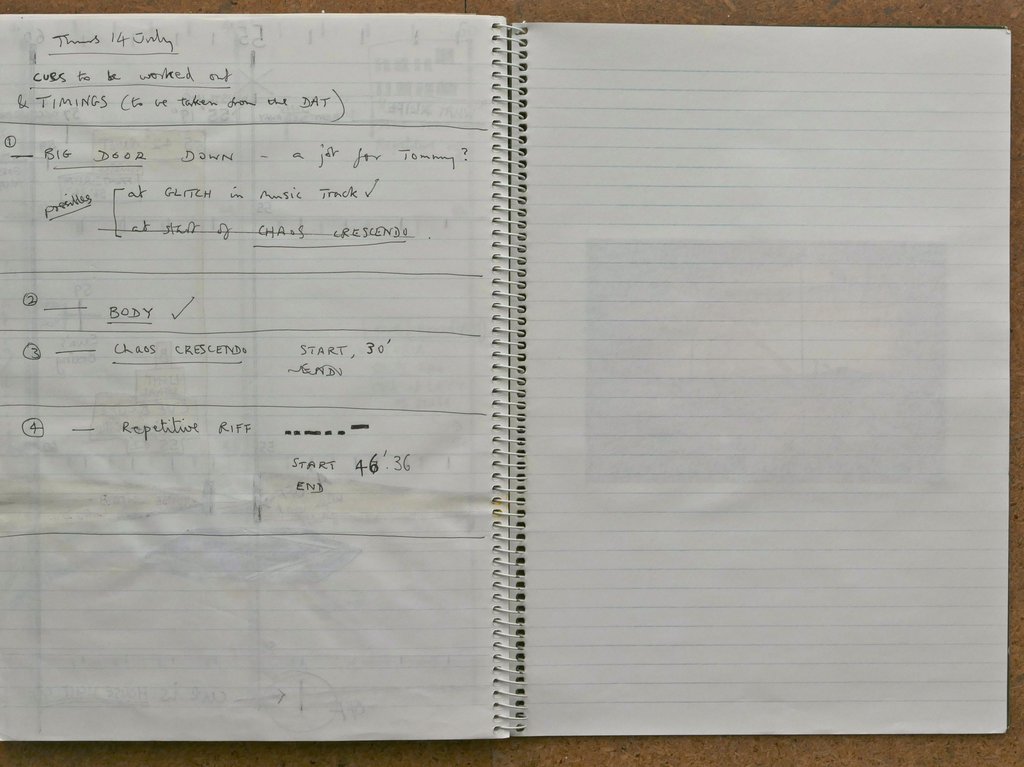 Thurs 14 July
CUES to be worked out
& TIMINGS (to be taken from the DAT)
① — BIG DOOR DOWN - a job for Tommy?
possibles
at GLITCH in music Track ✓
at start of CHAOS CRESCENDO.
② — BODY ✓
③ — Chaos CRESCENDO START, 30'
END
④ — Repetitive RIFF
START 46'.36
END